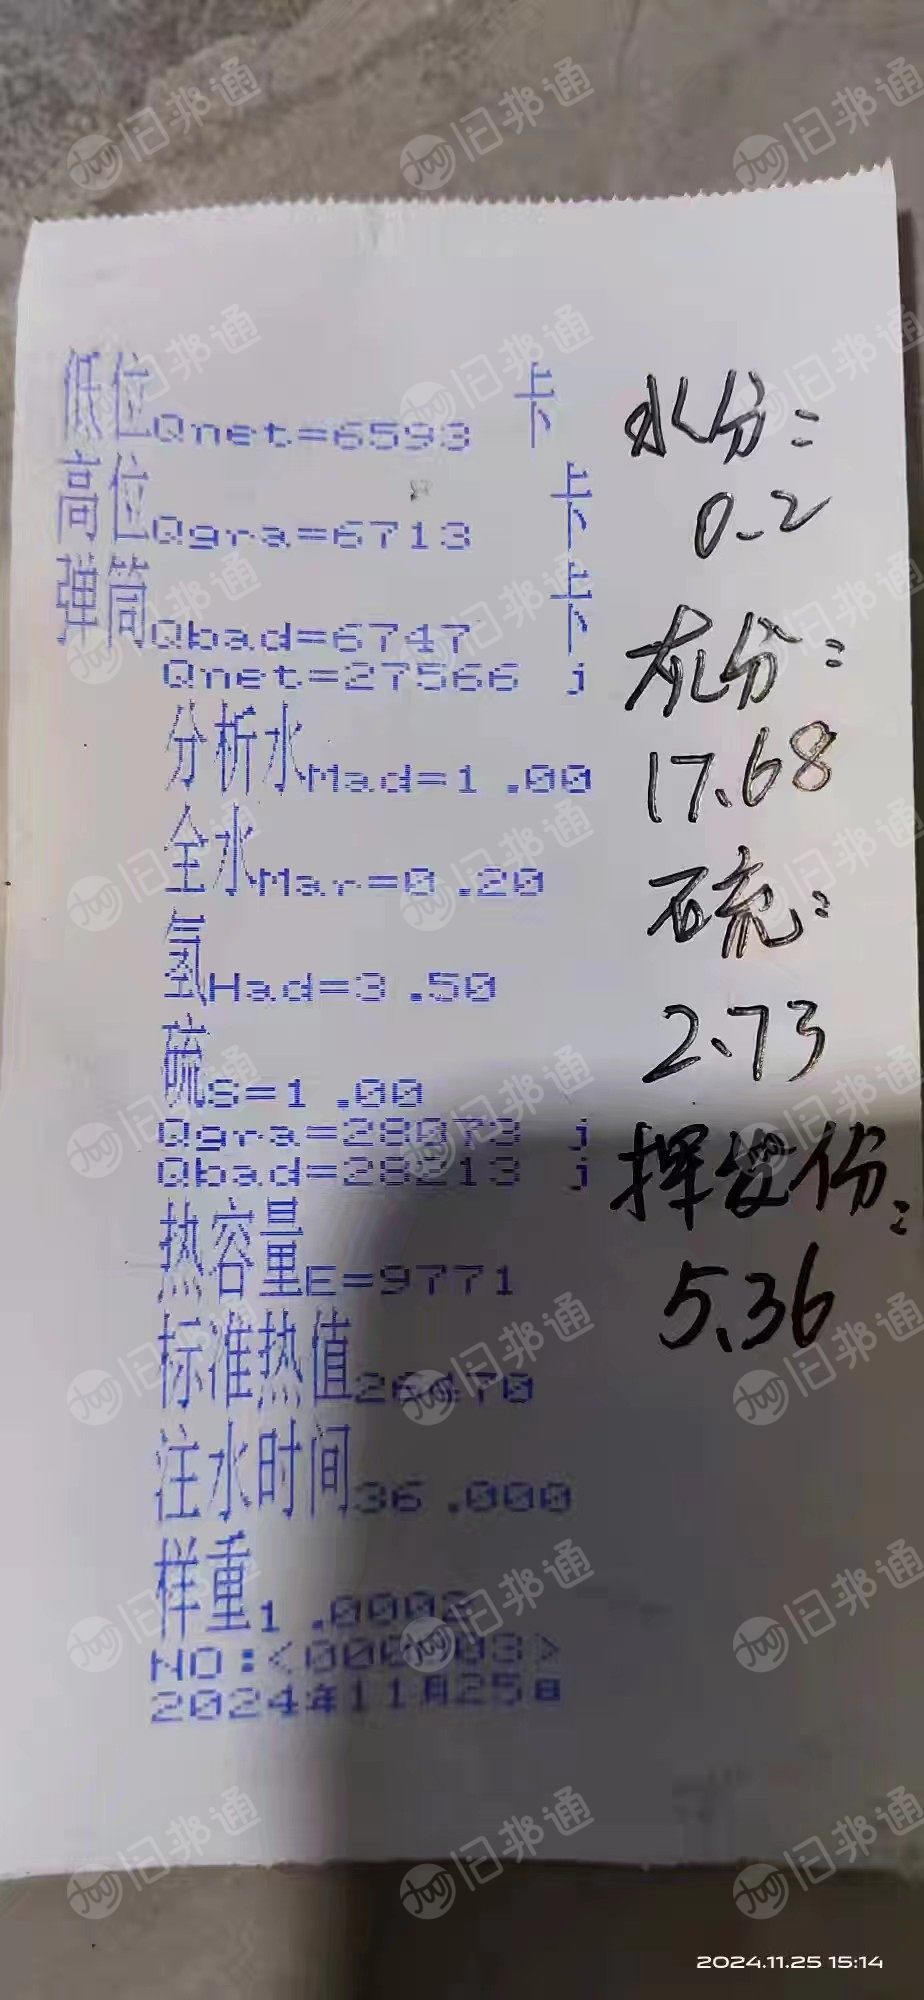 低位Qnet=6593 卡
高位Qgra=6713 卡
弹筒Qbad=6747 卡
Qnet=27566 j
分析水Mad=1.00
全水Mar=0.20
氢Had=3.50
硫S=1.00
Qgra=28073 j
Qbad=28213 j
热容量E=9771
标准热值26470
注水时间36.000
样重1.0002
2024年11月25日
水分:
0.2
灰分:
17.68
硫:
2.73
挥发份:
5.36
旧邦通
2024.11.25 15:14